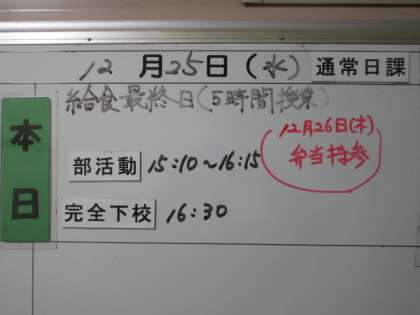 12月25日(水) 通常日課
本日
給食最終日(5時間授業)
12月26日(木)
弁当持参
部活動 15:10~16:15
完全下校 16:30